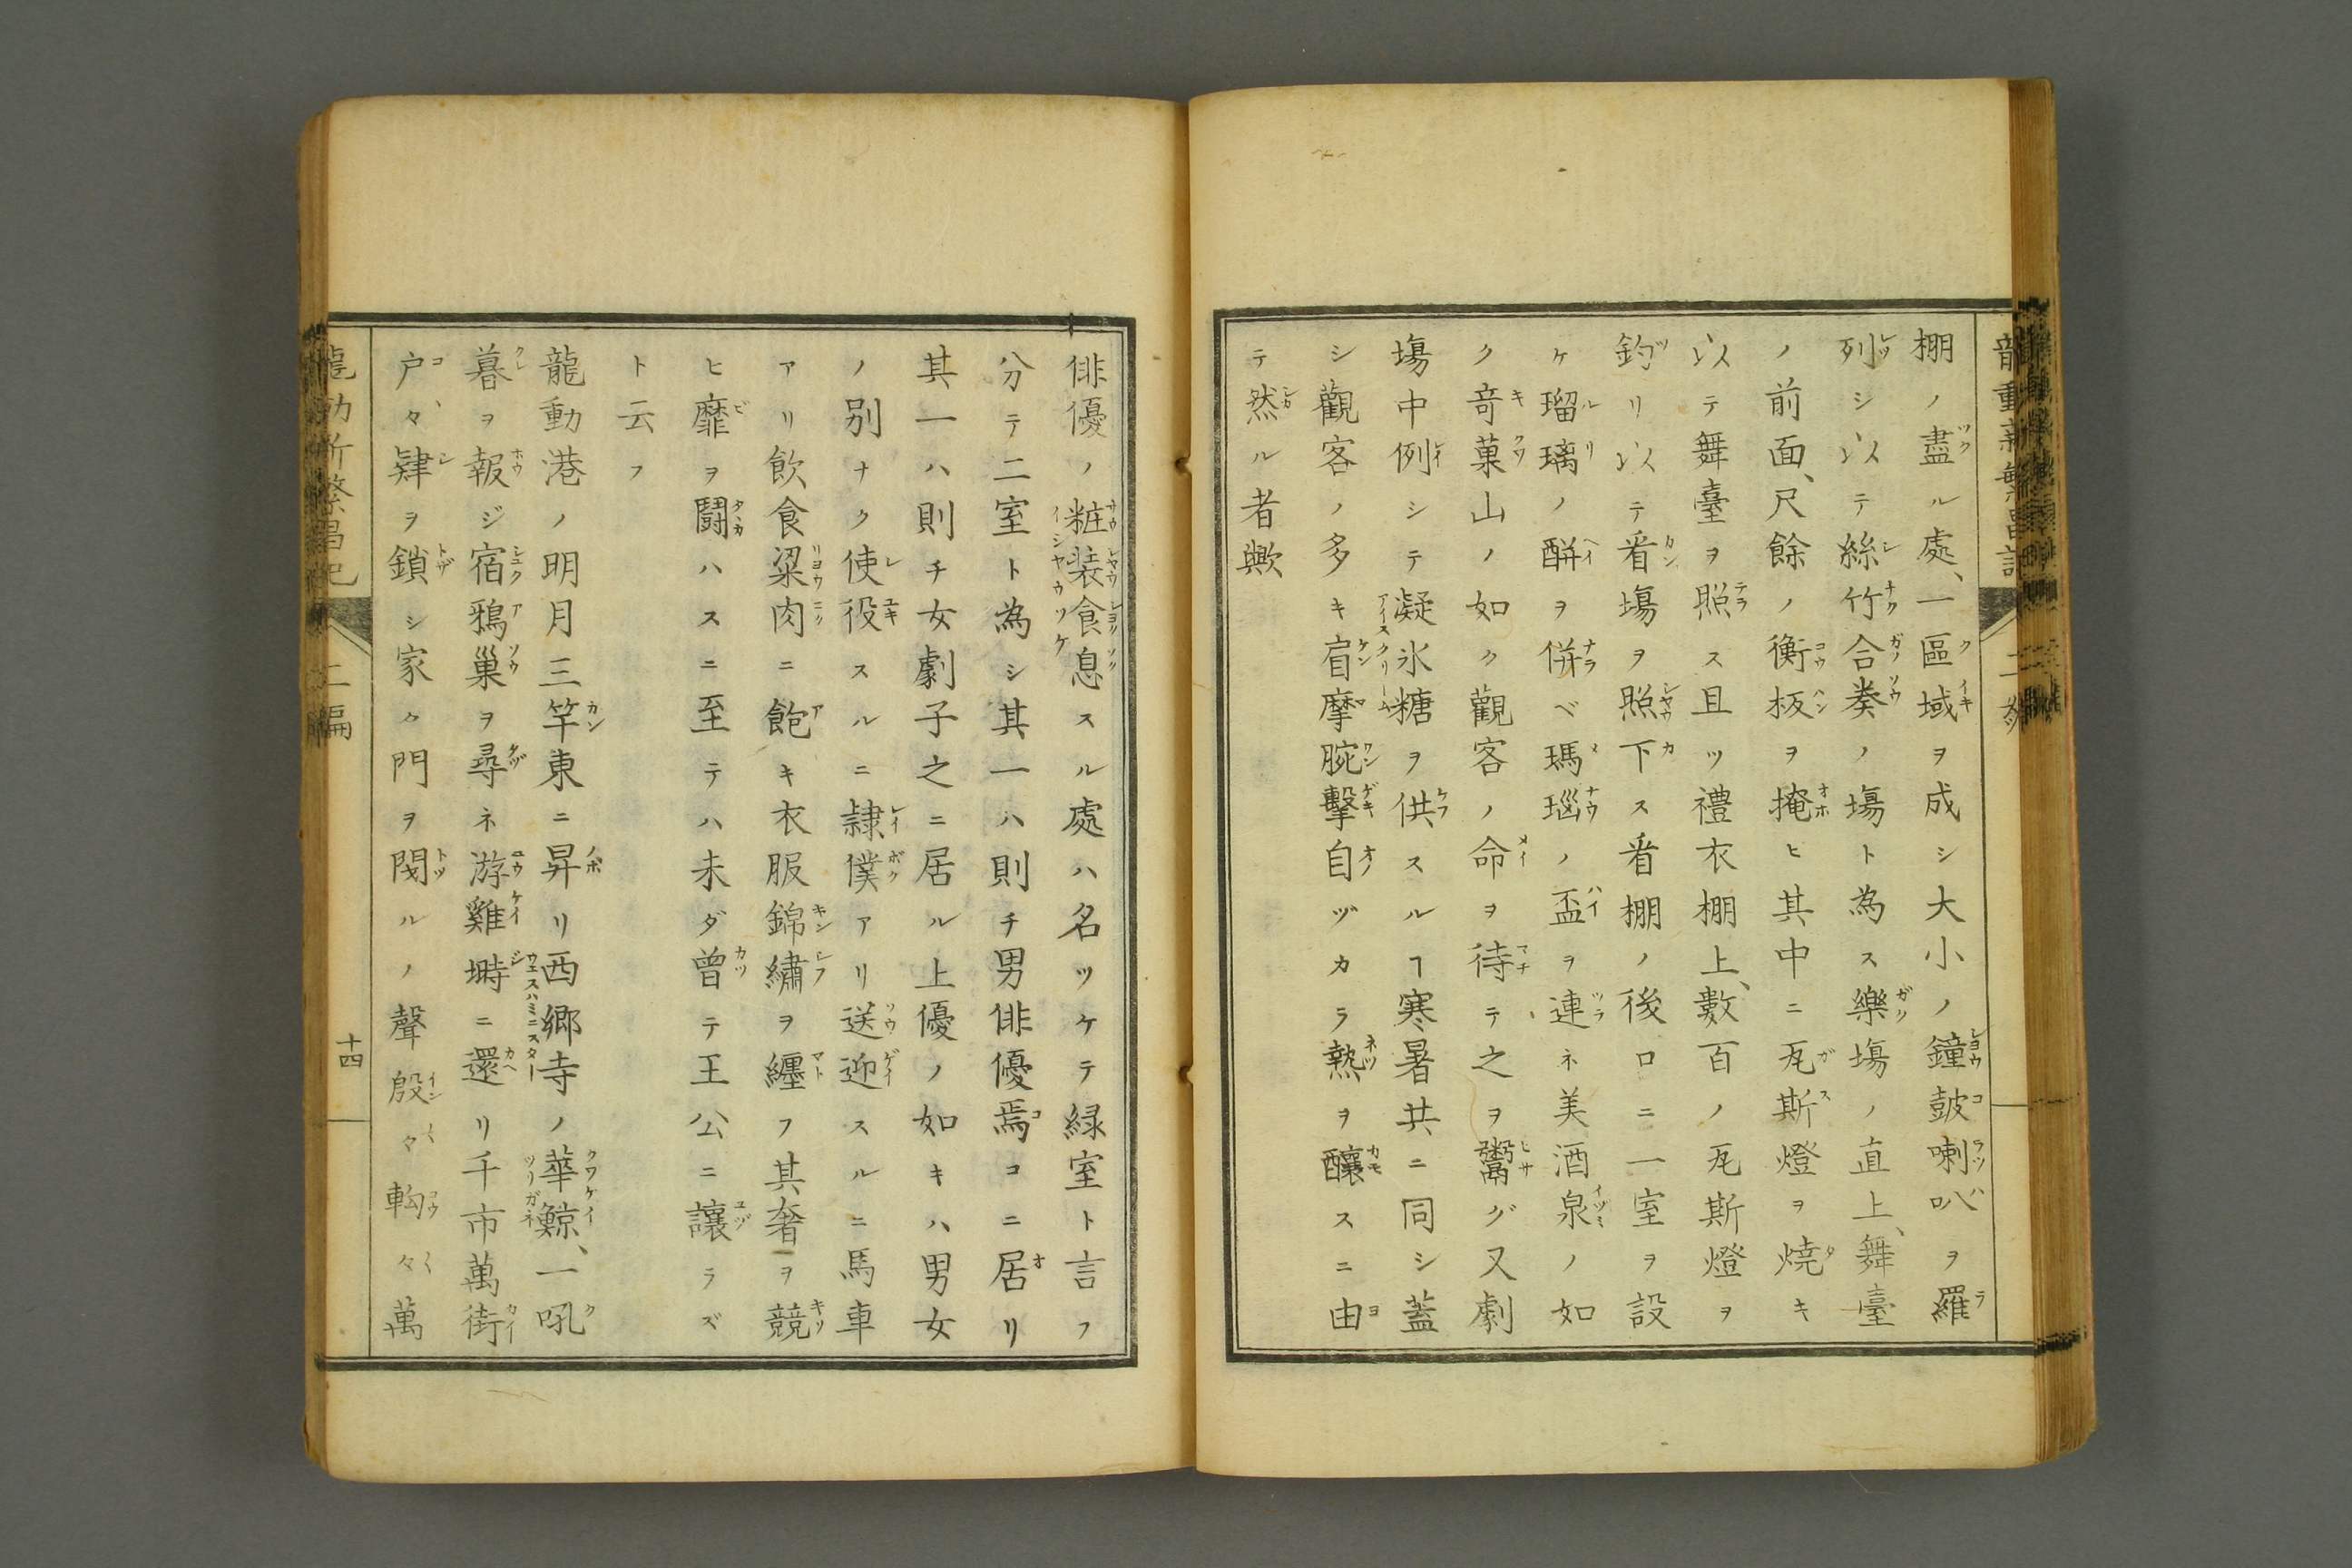 龍動新繁昌記 二編
棚ノ盡ル處、一區域ヲ成シ大小ノ鐘鼓喇叭ヲ羅
列シ以テ絲竹合奏ノ塲ト為ス樂塲ノ直上、舞臺
ノ前面、尺餘ノ衡板ヲ掩ヒ其中ニ瓦斯燈ヲ燒キ
以テ舞臺ヲ照ス且ツ禮衣棚上、數百ノ瓦斯燈ヲ
釣リ以テ看塲ヲ照下ス看棚ノ後ロニ一室ヲ設
ケ瑠璃ノ缾ヲ併ベ瑪瑙ノ盃ヲ連ネ美酒泉ノ如
ク竒菓山ノ如ク觀客ノ命ヲ待テ之ヲ鬻グ又劇
塲中例シテ凝氷糖ヲ供スルヿ寒暑共ニ同シ蓋
シ觀客ノ多キ肩摩腕擊自ヅカラ熱ヲ釀スニ由
テ然ル者歟
俳優ノ粧装食息スル處ハ名ツケテ緑室ト言フ
分テ二室ト為シ其一ハ則チ男俳優焉コニ居リ
其一ハ則チ女劇子之ニ居ル上優ノ如キハ男女
ノ別ナク使役スルニ隷僕アリ送迎スルニ馬車
アリ飲食粱肉ニ飽キ衣服錦繡ヲ纏フ其奢ヲ競
ヒ靡ヲ鬪ハスニ至テハ未ダ曽テ王公ニ讓ラズ
ト云フ
龍動港ノ明月三竿東ニ昇リ西郷寺ノ華鯨、一吼
暮ヲ報ジ宿鴉巢ヲ尋ネ游雞塒ニ還リ千市萬街
戸々肆ヲ鎖シ家々門ヲ閉ルノ聲殷々輷々萬
龍動新繁昌記 二編 十四